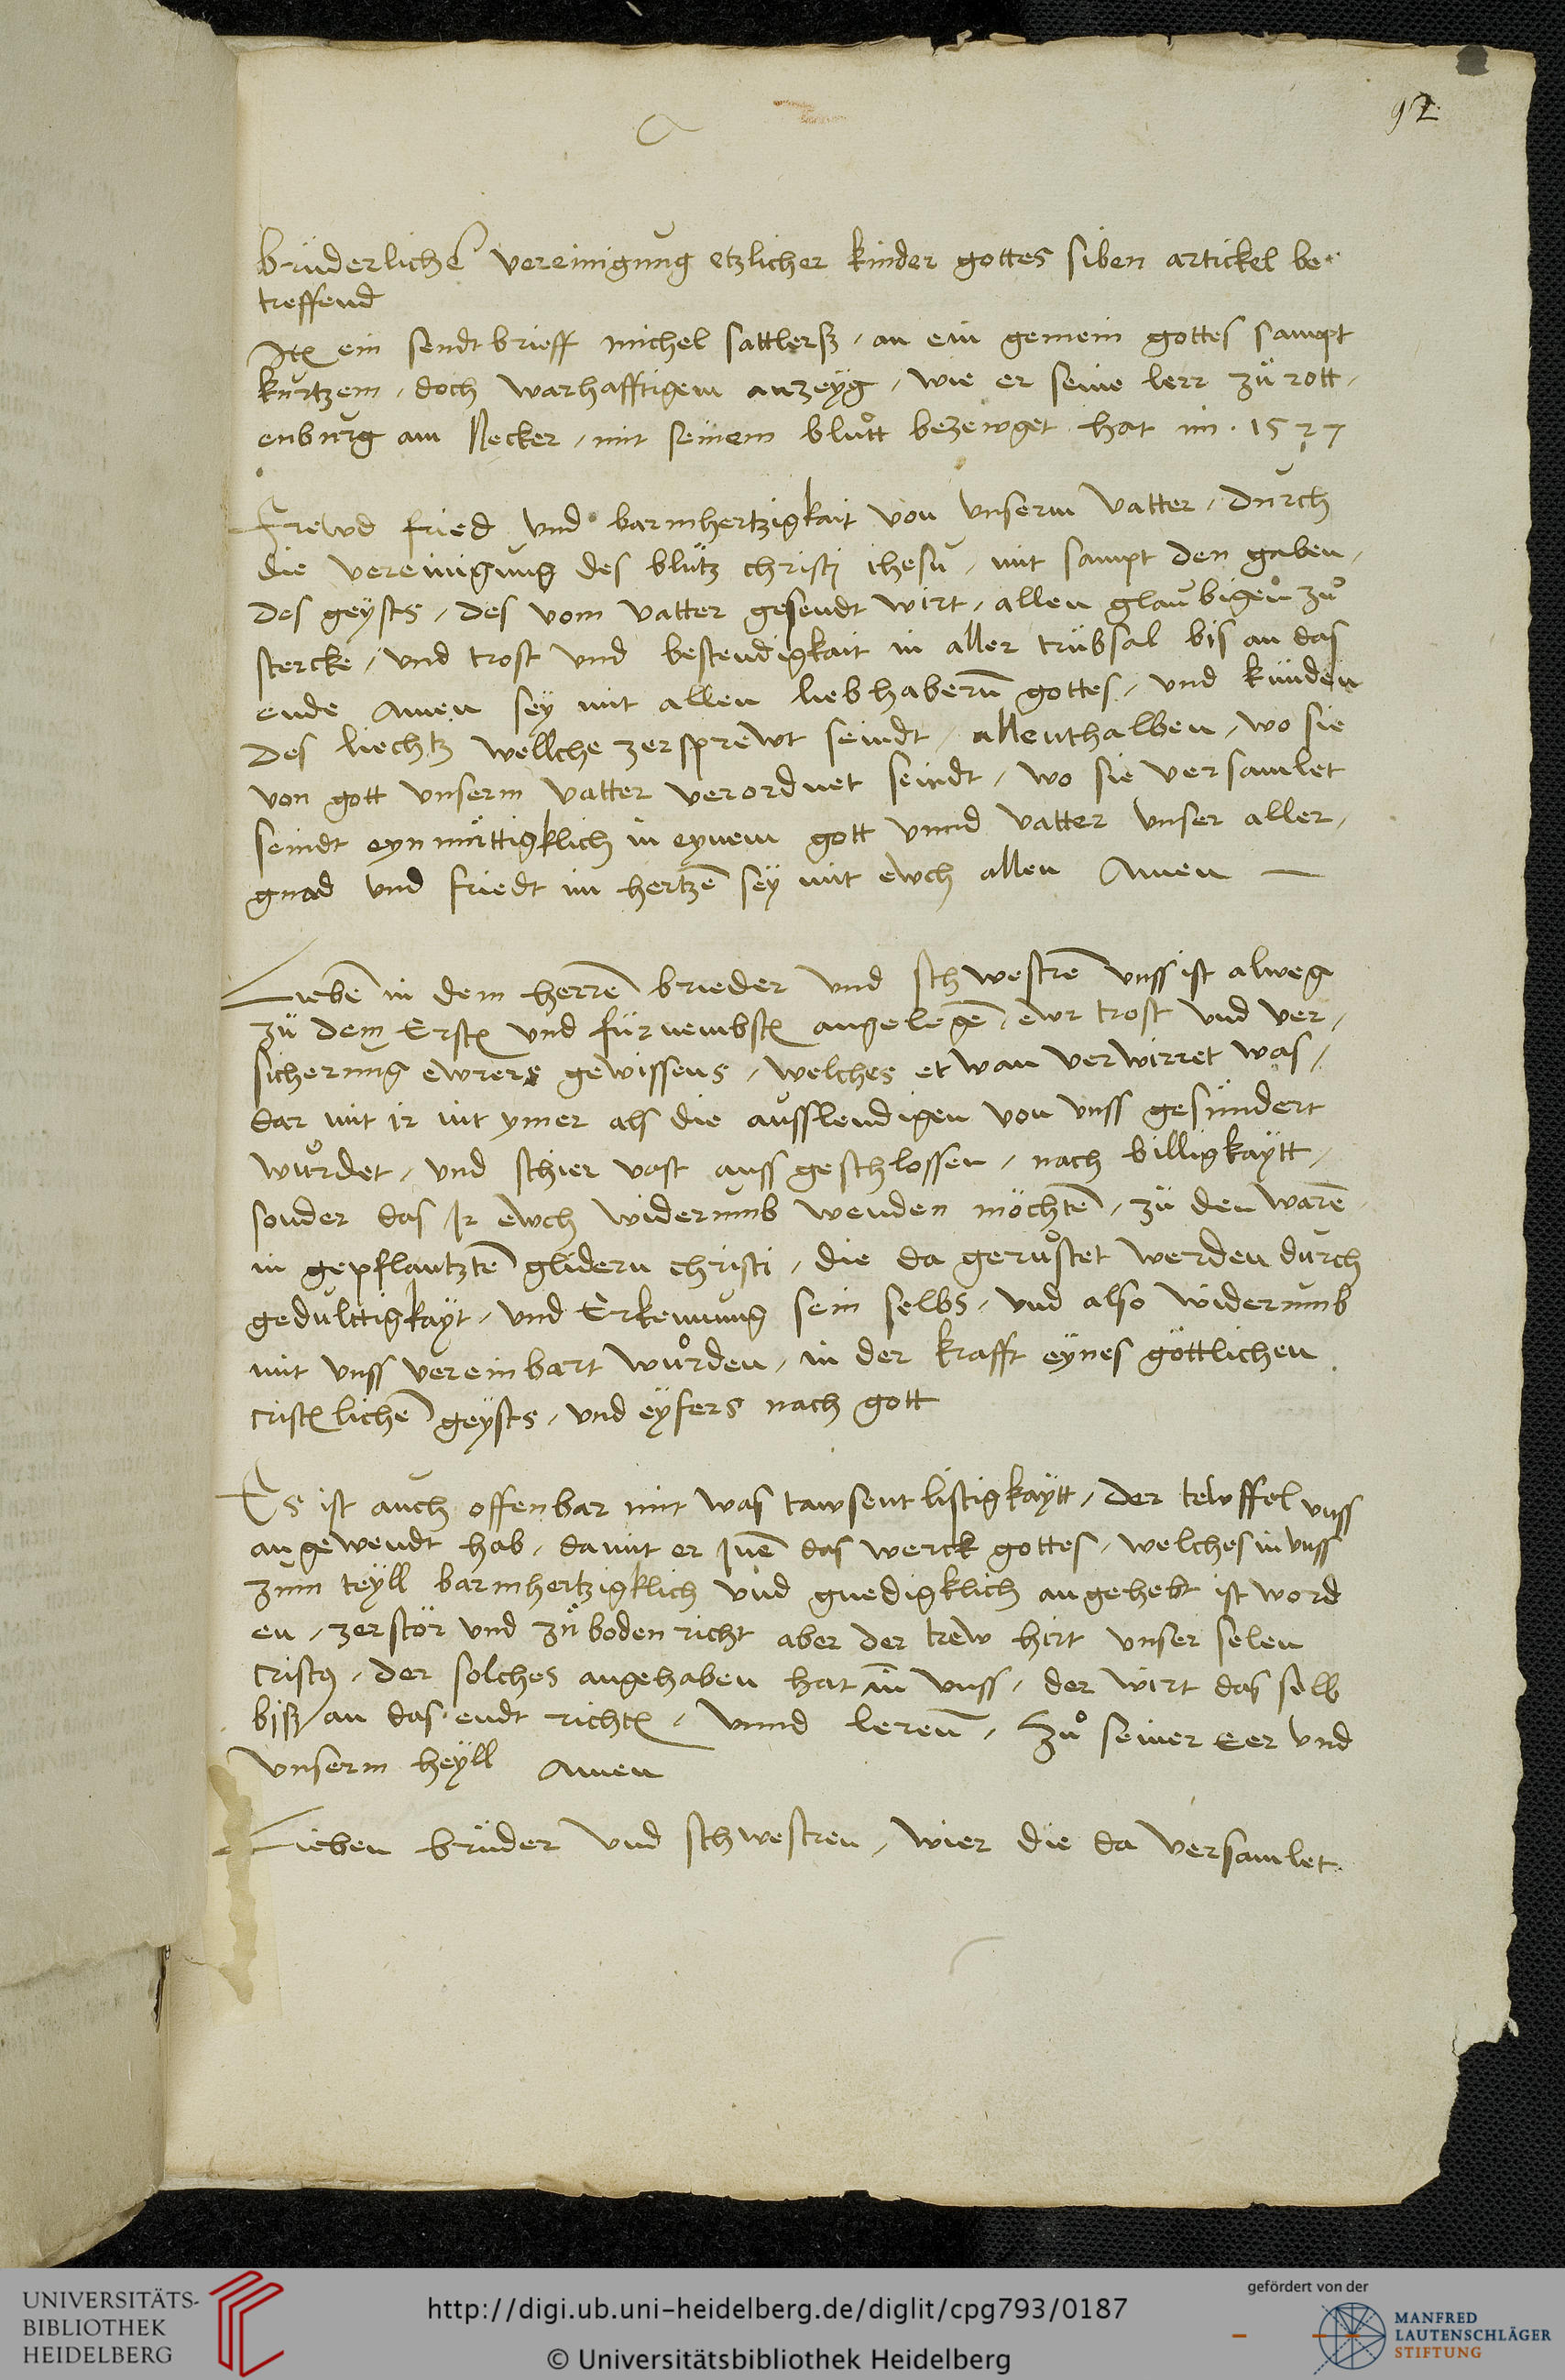 92
brüderliche vereinigung etzlicher kinder gottes siben artickel be
treffend
Itē ein sendtbrieff michel sattlerß / an ein gemein gottes sampt
kurtzem / doch warhafftigem anzeyg / wie er seine lerr zů rott /
enburg am Necker / mit seinem blůtt bezewget hat im . 1527
Frewd fried vnd barmhertzigkait von vnserm vatter / durch
die vereinigung des blůtz christi ihesu / mit sampt den gaben /
des geysts / des vom vatter gesendt wirt / allen glaubigen zů
stercke / vnd trost vnd bestendigkait in aller trübsal bis an das
ende Amen sey mit allen liebhaberñ gottes / vnd kinden
des liechtz wellche zersprewt seindt / allenthalben / wo sie
von gott vnserm vatter verordnet seindt / wo sie versamlet
seindt eynmüttigklich in eynem gott vnnd vatter vnser aller /
gnad vnd friedt im hertzē sey mit ewch allen Amen
Liebē in dem herrē brieder vnd schwestrē vnss ist alweg
zů dem Erstē vnd fürnembstē angelegē / ewr trost vnd ver /
sicherung ewrers gewissens / welches etwan verwirret was /
dar mit ir nit ymer als die ausslendigen von vnss gesündert
wůrdet / vnd schier vast aussgeschlossen / nach billigkaytt /
sonder das ir ewch widerumb wenden möchtē / zů den warē
in gepflantztē glidern christi / die da gerůstet werden durch
gedulttigkayt / vnd Erkennung sein selbs / vnd also widerumb
mit vnss vereinbart wůrden / in der krafft eynes göttlichen
cristēlichē geysts / vnd eyfers nach gott
Es ist auch offenbar mit was tawsent listigkaytt / der tewffel vnss
angewendt hab / damit er inē das werck gottes / welches in vnss
zum teyll barmhertzigklich vnd gnedigklich angehebt ist word
en / zerstör vnd zů boden richt aber der trew hirt vnser selen
cristꝰ / der solches angehaben hat in vnss / der wirt das selb
biß an das endt richtē / vnnd lereñ / zů seiner Eer vnd
vnserm heyll Amen
Lieben brüder vnd schwestren / wier die da versamlet
UNIVERSITÄTS-
BIBLIOTHEK
HEIDELBERG
http://digi.ub.uni-heidelberg.de/diglit/cpg793/0187
© Universitätsbibliothek Heidelberg
gefördert von der
MANFRED
LAUTENSCHLÄGER
STIFTUNG